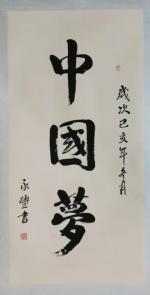 中國夢
歲次己亥年冬月
永豐書